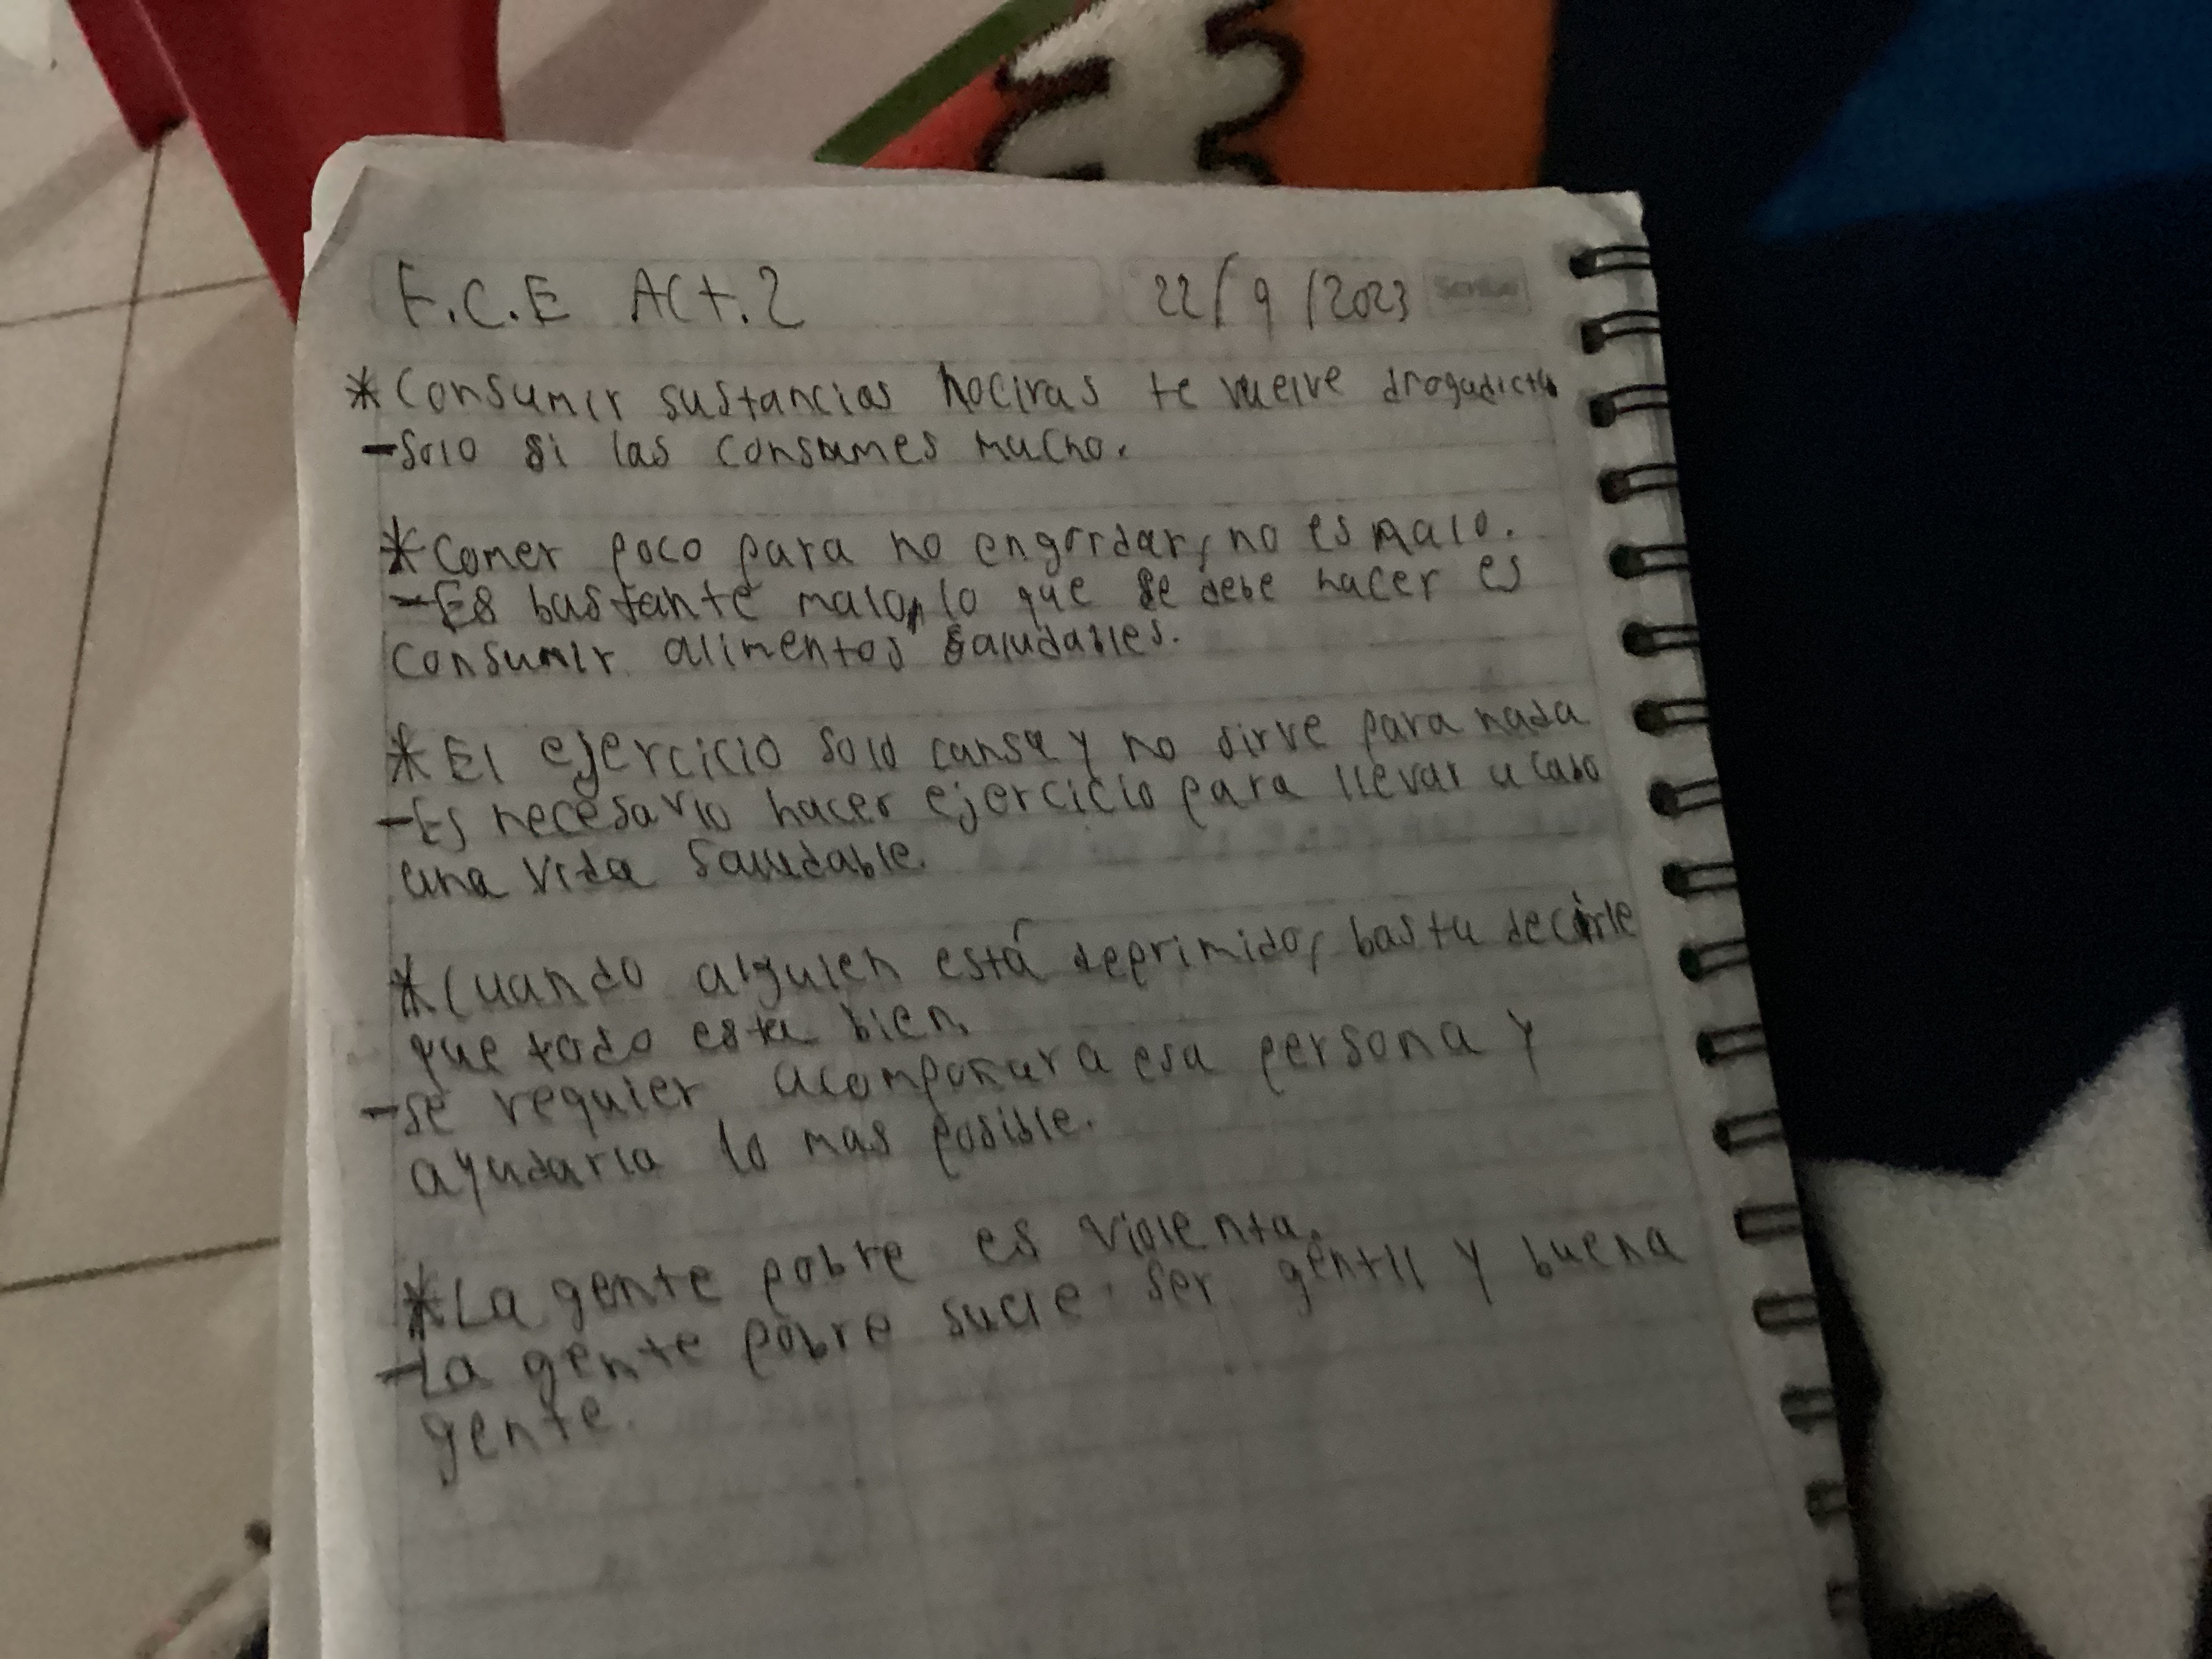 F.C.E Act.2 22/9/2023 Scribe
*Consumir sustancias nocivas te vuelve drogadicto
-Solo si las consumes mucho.
*Comer poco para no engordar, no es malo.
-Es bastante malo, lo que se debe hacer es
consumir alimentos saludables.
*El ejercicio solo cansa y no sirve para nada
-Es necesario hacer ejercicio para llevar a cabo
una vida saludable.
*Cuando alguien está deprimido, basta decirle
que todo esta bien.
-se requier acompañar a esa persona y
ayudarla lo mas posible.
*La gente pobre es violenta.
-La gente pobre suele ser gentil y buena
gente.